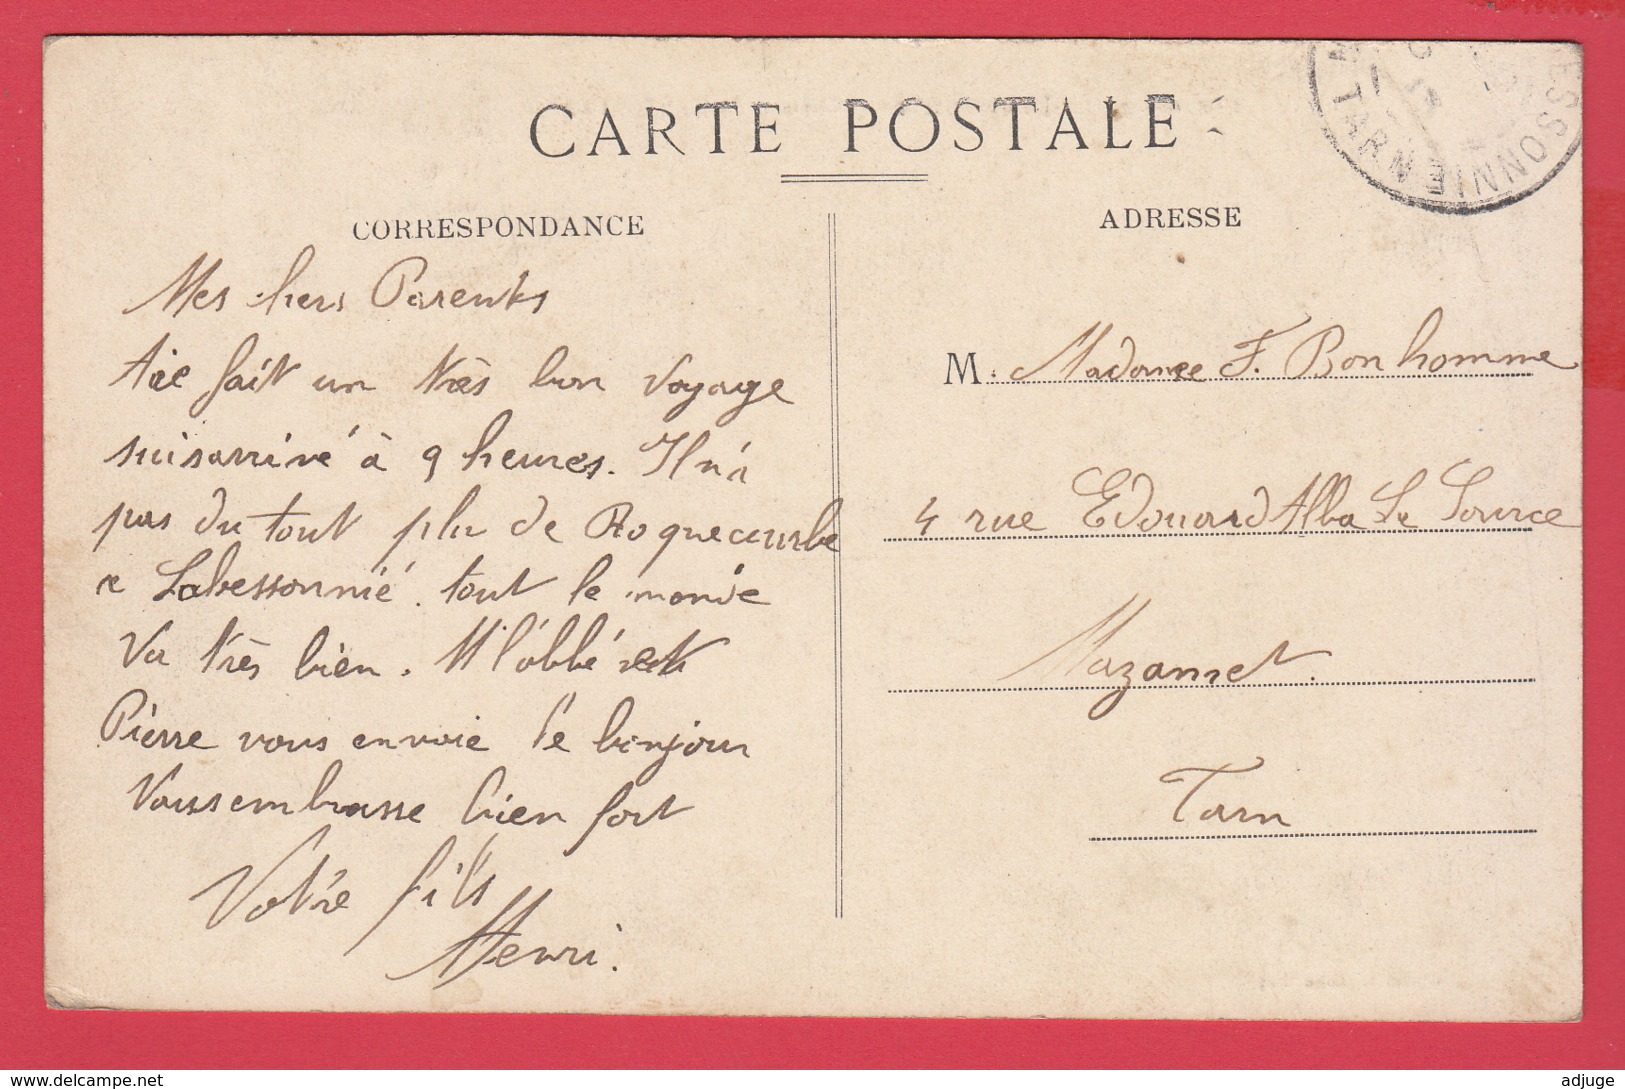 CARTE POSTALE
CORRESPONDANCE
Mes chers Parents
Aie fait un très bon voyage
suis arrivé à 9 heures. Il n'a
pas du tout plu de Roquecourbe
a Labessonnié. tout le monde
Va très bien. M l'abbé et
Pierre vous envoie le bonjour
Vous embrasse bien fort
Votre fils
Henri.
ADRESSE
M. Madame F. Bonhomme
4 rue Edouard Alba La Source
Mazamet.
Tarn
TARN
ESSONNIE
www.delcampe.net
adjuge